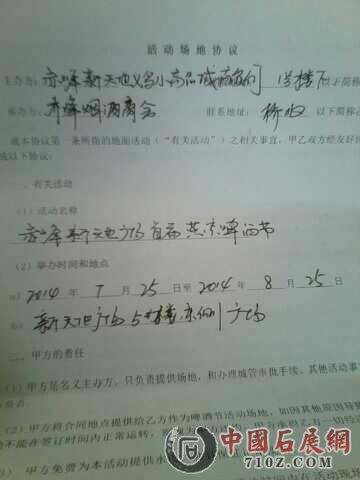 活动场地协议
主办方：赤峰新天地义乌小商品城 以下简称
承办方：赤峰烟酒商会 联系地址：桥北 以下简称
成本协议第一条所指的地面活动（“有关活动”）之相关事宜，甲乙双方经友好
成以下协议：
、有关活动
（1）活动名称
赤峰新天地广场首届燕京啤酒节
（2）举办时间和地点
a）2014 年 7 月 25 日至 2014 年 8 月 25 日
b）新天地广场 广场
二、甲方的责任
（1）甲方是名义主办方，只负责提供场地，和办理城管审批手续，其他活动事
（2）甲方将合同地点提供给乙方作为啤酒节活动场地，如因其他原因导
动不能在签订时间内正常运转，
）甲方免费为本活动提供水
中國石展網
710Z.com